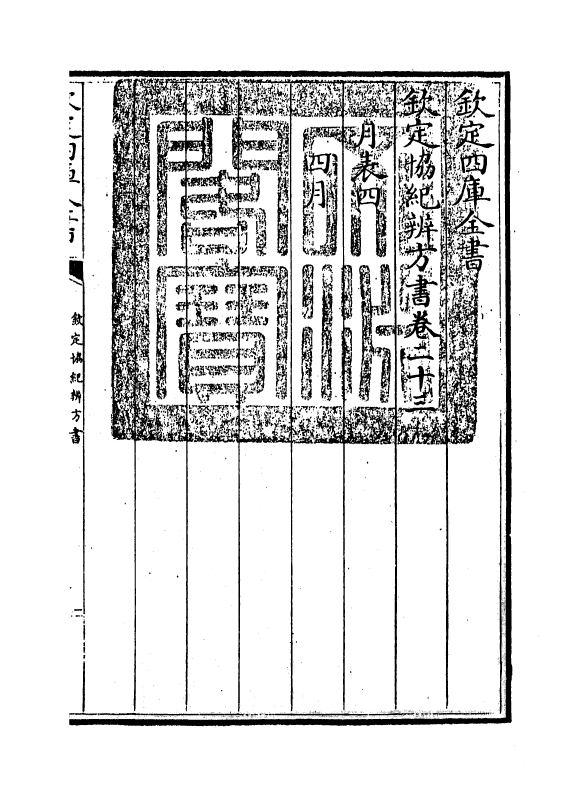 欽定四庫全書
欽定協紀辨方書卷二十三
月表四
四月
文淵閣寶
欽定四庫全書
欽定協紀辨方書